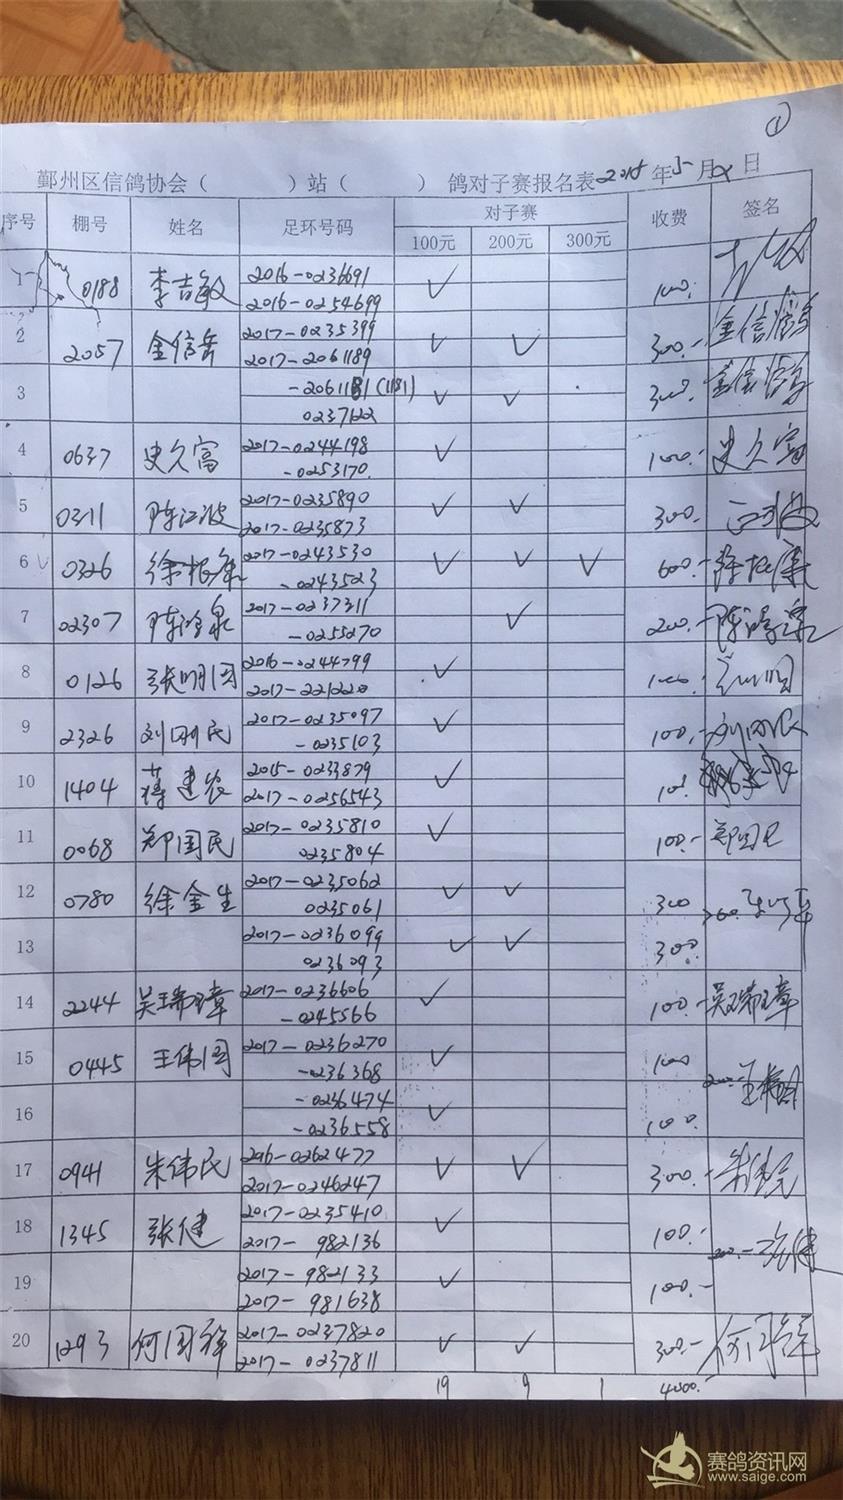 ①
鄞州区信鸽协会（ ）站（ ） 鸽对子赛报名表 2018年5月2日
序号 棚号 姓名 足环号码 对子赛 收费 签名
100元 200元 300元
1 0188 李吉敏 2016-0236691 ✓ 100.
2016-0254699
2 2057 金信岳 2017-0235399 ✓ ✓ 300.-
2017-2061189
3 -2061181 (1181) ✓ ✓ 300.-
0237622
4 0637 史久富 2017-0244198 ✓ 100.- 史久富
-0253170
5 0311 陈江波 2017-0235890 ✓ ✓ 300.
2017-0235873
6 0326 徐根康 2017-0243530 ✓ ✓ ✓ 600.- 徐根康
-0243523
7 02307 陈鸿泉 2017-0237311 ✓ 200.- 陈鸿泉
-0255270
8 0126 张明国 2016-0244799 ✓ 100.
2017-221220
9 2326 刘刚民 2017-0235097 ✓ 100.- 刘刚民
-0235103
10 1404 蒋建农 2015-0233879 ✓ 100
2017-0256543
11 0068 郑国民 2017-0235810 ✓ 100.- 郑国民
0235804
12 0780 徐金生 2017-0235062 ✓ ✓ 300
0235061
13 2017-0236099 ✓ ✓ 300.
0236093
14 2244 吴瑞璋 2017-0236606 ✓ 100.- 吴瑞璋
-0245566
15 0445 王伟国 2017-0236270 ✓ 100
-0236368
16 -0236474 ✓ 100.
-0236558
17 0941 朱伟民 2016-0262477 ✓ ✓ 300.- 朱伟民
2017-0246247
18 1345 张健 2017-0235410 ✓ 100.-
2017- 982136
19 2017-982133 ✓ 100.-
2017- 981638
20 1293 何国祥 2017-0237820 ✓ ✓ 300.- 何国祥
2017-0237811
19 9 1 4000.-
赛鸽资讯网
www.saige.com